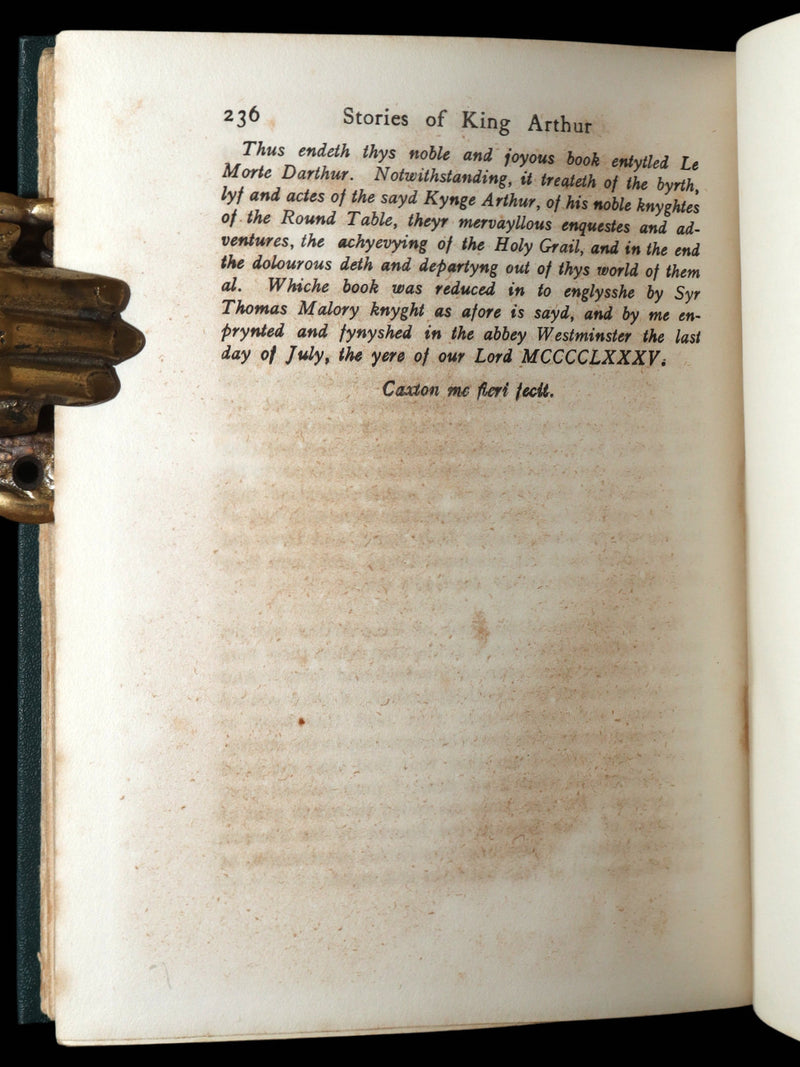 236 Stories of King Arthur
Thus endeth thys noble and joyous book entytled Le
Morte Darthur. Notwithstanding, it treateth of the byrth,
lyf and actes of the sayd Kynge Arthur, of his noble knyghtes
of the Round Table, theyr mervayllous enquestes and ad-
ventures, the achyevying of the Holy Grail, and in the end
the dolourous deth and departyng out of thys world of them
al. Whiche book was reduced in to englysshe by Syr
Thomas Malory knyght as afore is sayd, and by me en-
prynted and fynyshed in the abbey Westminster the last
day of July, the yere of our Lord MCCCCLXXXV.
Caxton me fieri fecit.